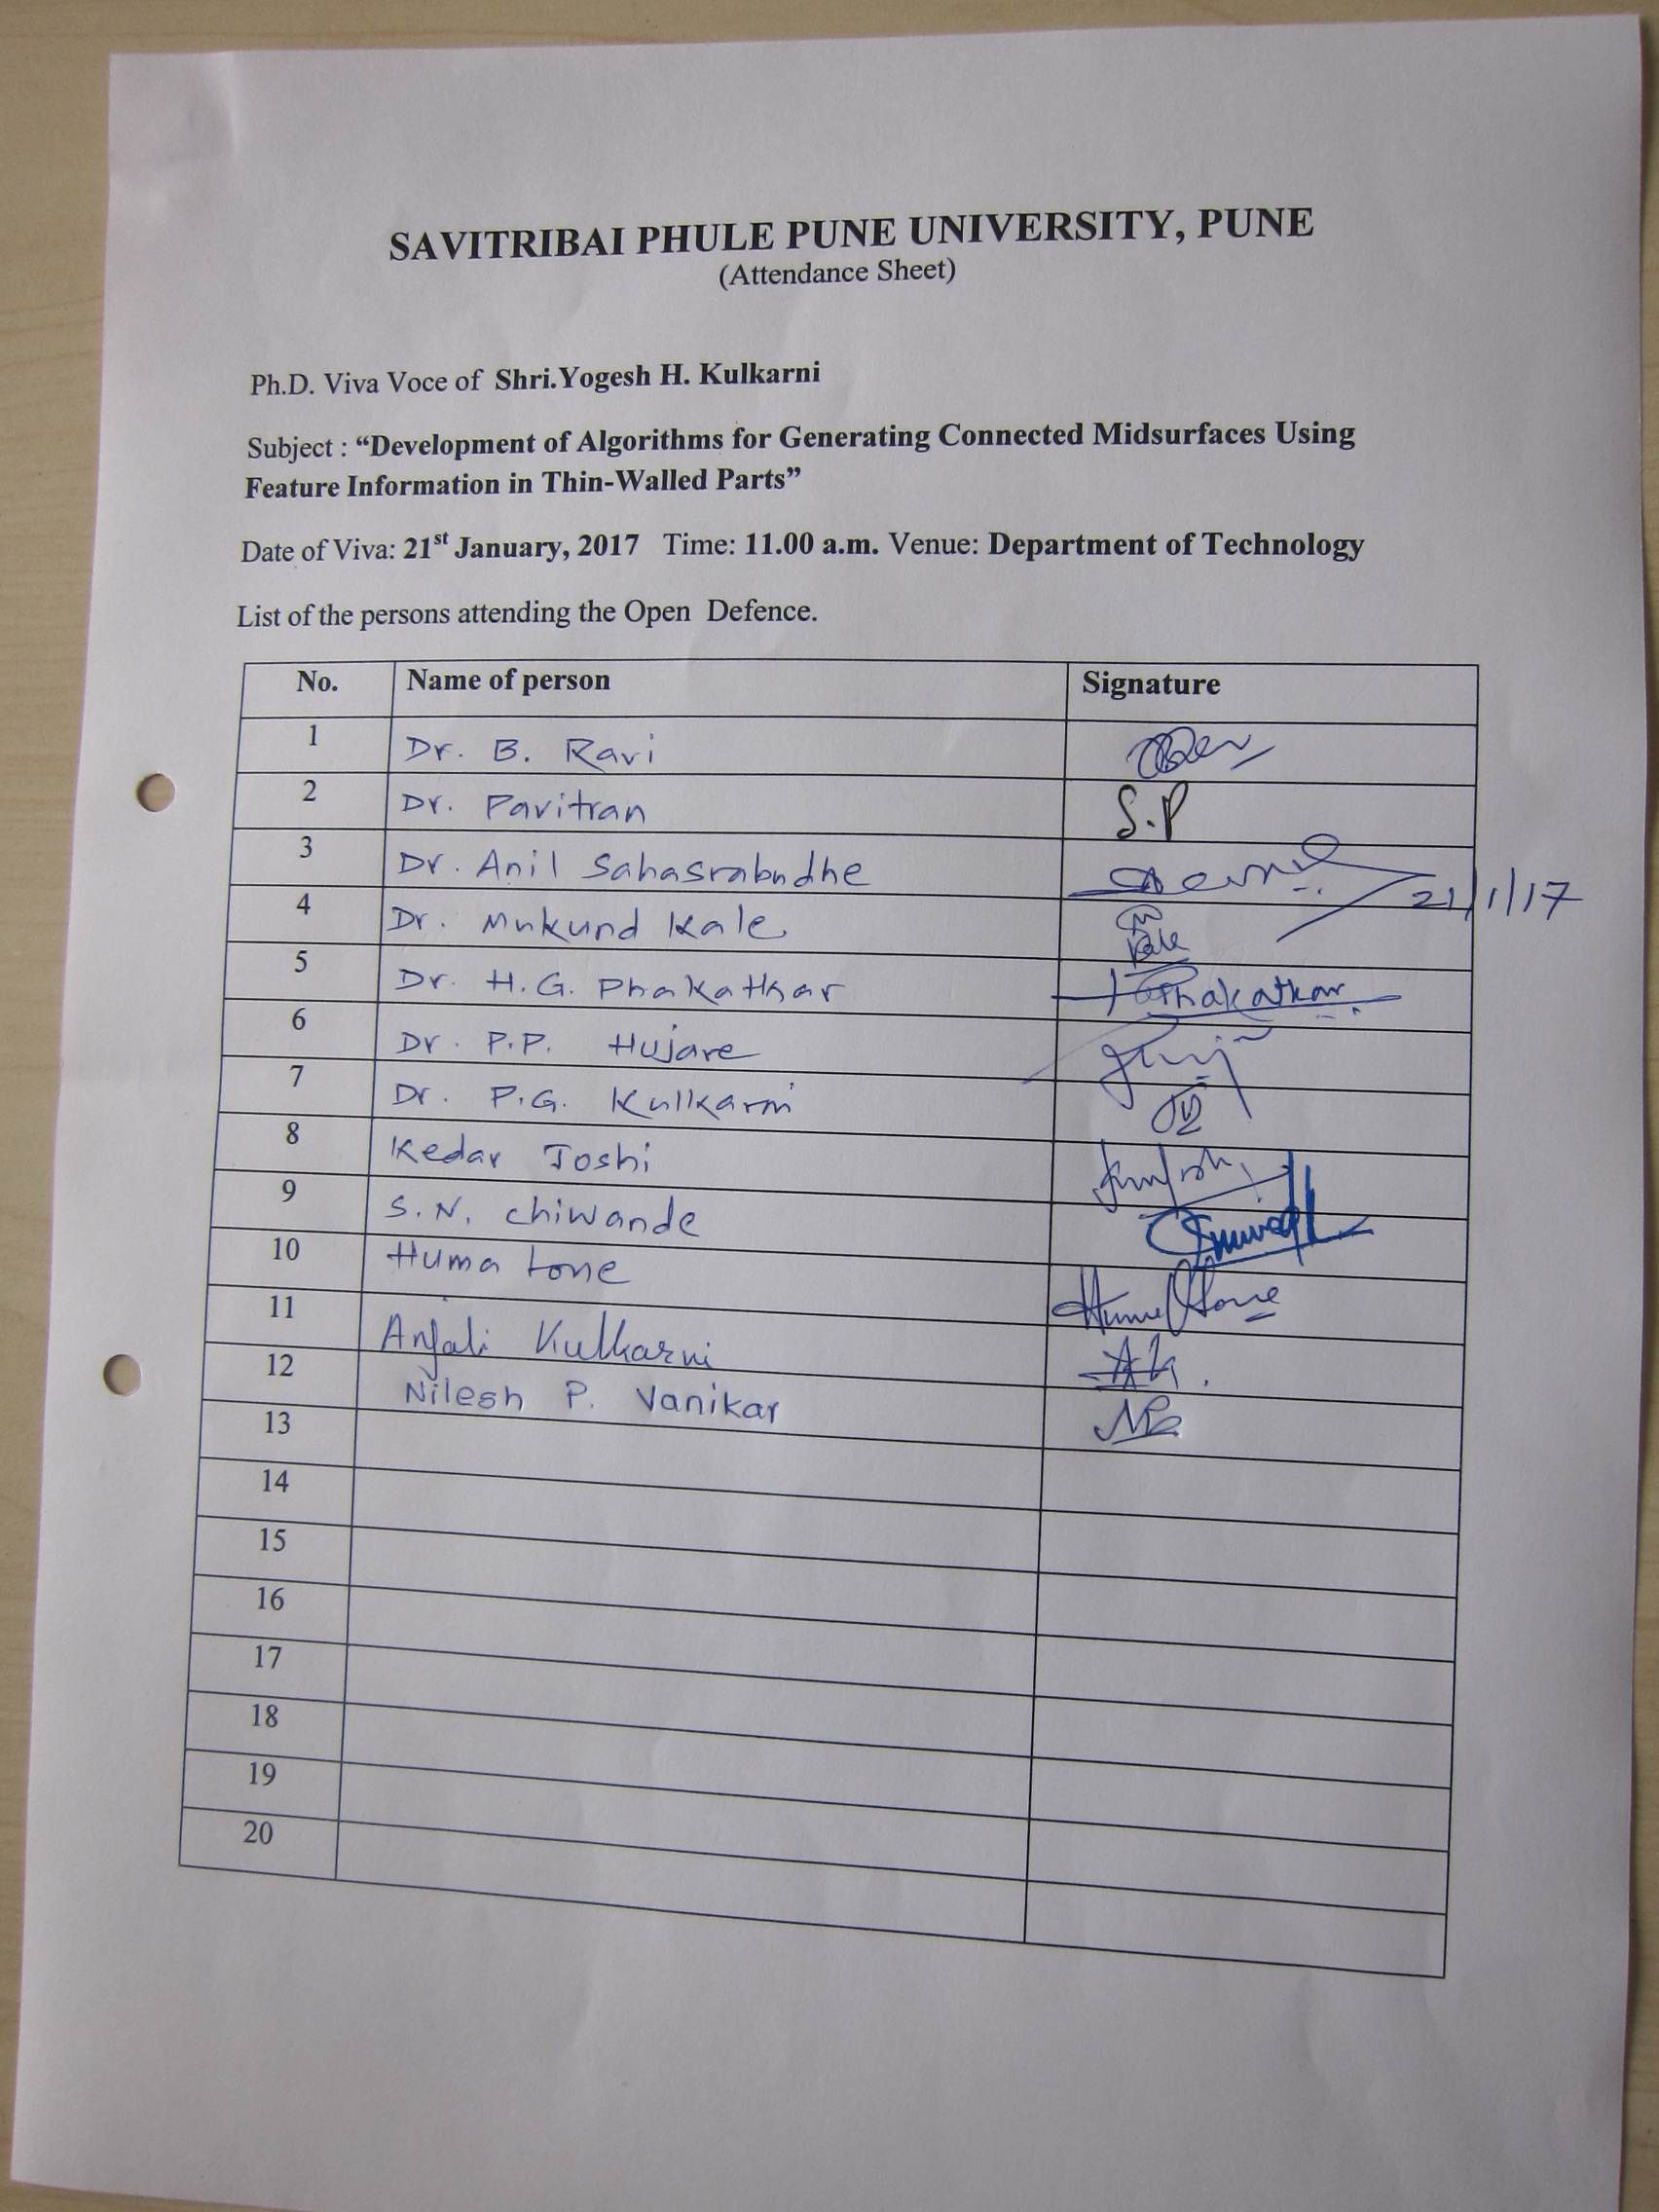 SAVITRIBAI PHULE PUNE UNIVERSITY, PUNE
(Attendance Sheet)
Ph.D. Viva Voce of Shri.Yogesh H. Kulkarni
Subject : “Development of Algorithms for Generating Connected Midsurfaces Using
Feature Information in Thin-Walled Parts”
Date of Viva: 21st January, 2017 Time: 11.00 a.m. Venue: Department of Technology
List of the persons attending the Open Defence.
No. Name of person Signature
1 Dr. B. Ravi
2 Dr. Pavitran S.P
3 Dr. Anil Sahasrabudhe 21/1/17
4 Dr. Mukund Kale Kale
5 Dr. H.G. Phakatkar Phakatkar
6 Dr. P.P. Hujare
7 Dr. P.G. Kulkarni
8 Kedar Joshi
9 S.N. Chiwande
10 Huma Lone Huma Lone
11 Anjali Kulkarni
12 Nilesh P. Vanikar
13
14
15
16
17
18
19
20